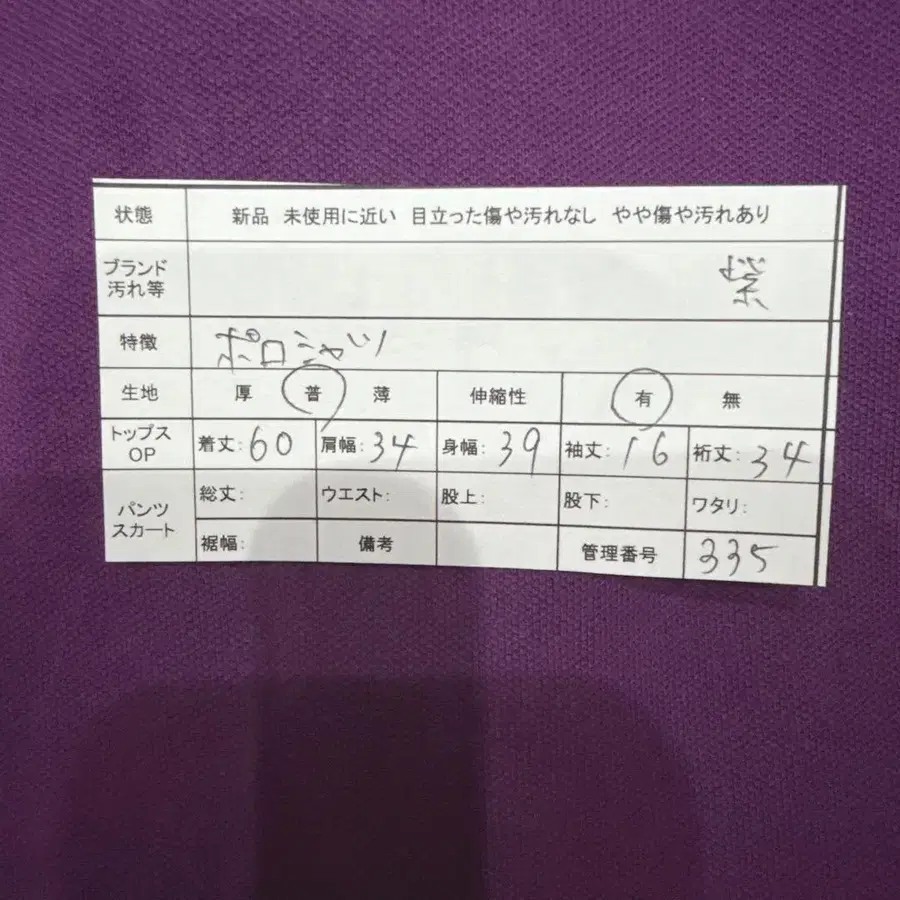 状態 新品 未使用に近い 目立った傷や汚れなし やや傷や汚れあり
ブランド
汚れ等 紫
特徴 ポロシャツ
生地 厚 普 薄 伸縮性 有 無
トップス
OP 着丈:60 肩幅:34 身幅:39 袖丈:16 裄丈:34
パンツ
スカート 総丈: ウエスト: 股上: 股下: ワタリ:
裾幅: 備考 管理番号 335